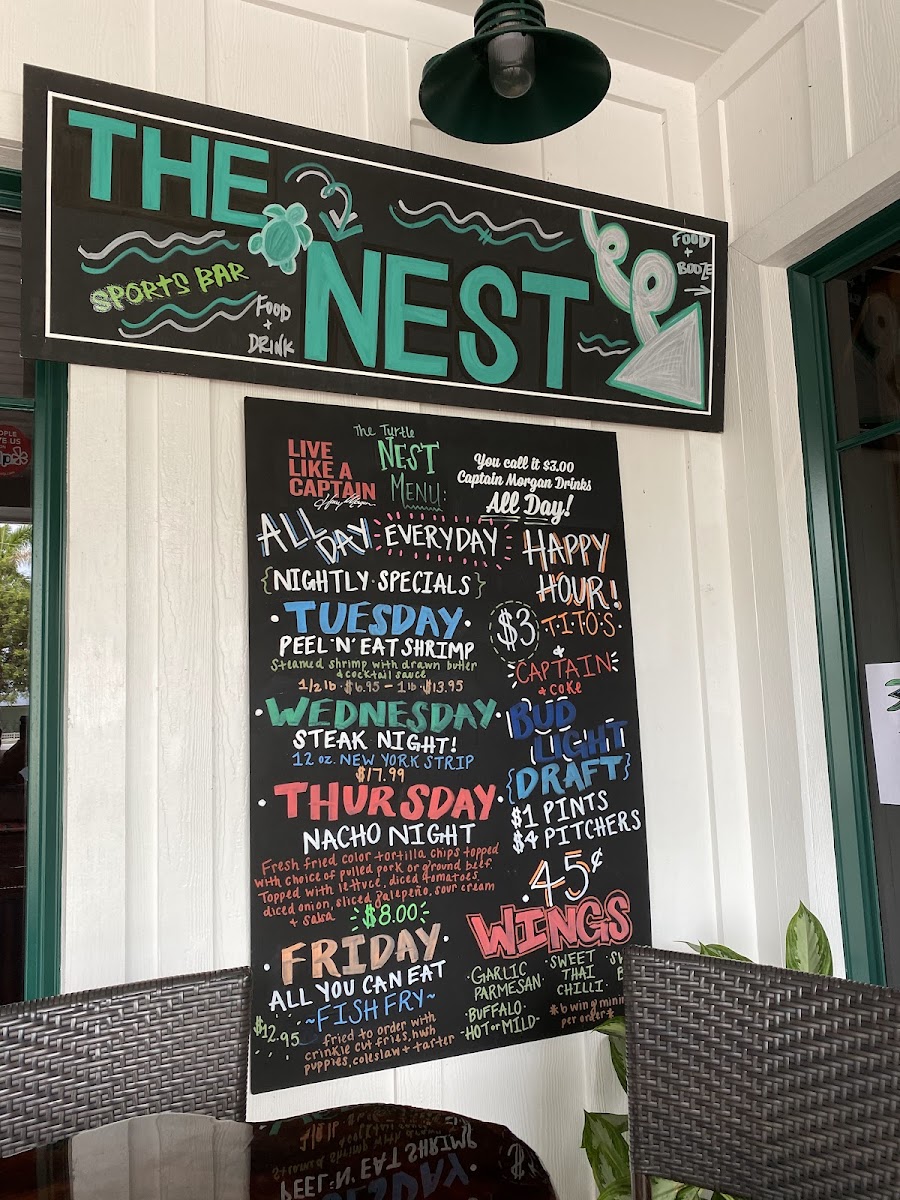 THE
NEST
SPORTS BAR
FOOD
+
DRINK
FOOD
+
BOOZE
The Turtle
NEST
MENU:
LIVE
LIKE A
CAPTAIN
You call it $3.00
Captain Morgan Drinks
All Day!
ALL
DAY
EVERYDAY
{NIGHTLY SPECIALS}
·TUESDAY·
PEEL 'N' EAT SHRIMP
Steamed shrimp with drawn butter
& cocktail sauce
1/2 lb · $6.95 - 1 lb · $13.95
·WEDNESDAY·
STEAK NIGHT!
12 oz. NEW YORK STRIP
$17.99
·THURSDAY·
NACHO NIGHT
Fresh fried color tortilla chips topped
with choice of pulled pork or ground beef.
Topped with lettuce, diced tomatoes,
diced onion, sliced jalepeño, sour cream
+ salsa
$8.00
·FRIDAY·
ALL YOU CAN EAT
~FISH FRY~
$12.95
fried to order with
crinkle cut fries, hush
puppies, coleslaw + tarter
HAPPY
HOUR!
$3
·TITO'S·
&
CAPTAIN
& COKE
BUD
LIGHT
{DRAFT}
$1 PINTS
$4 PITCHERS
.45¢
WINGS
·GARLIC
PARMESAN·
·SWEET
THAI
CHILLI·
·BUFFALO·
HOT or MILD-
per order*
PEEL 'N' EAT SHRIMP